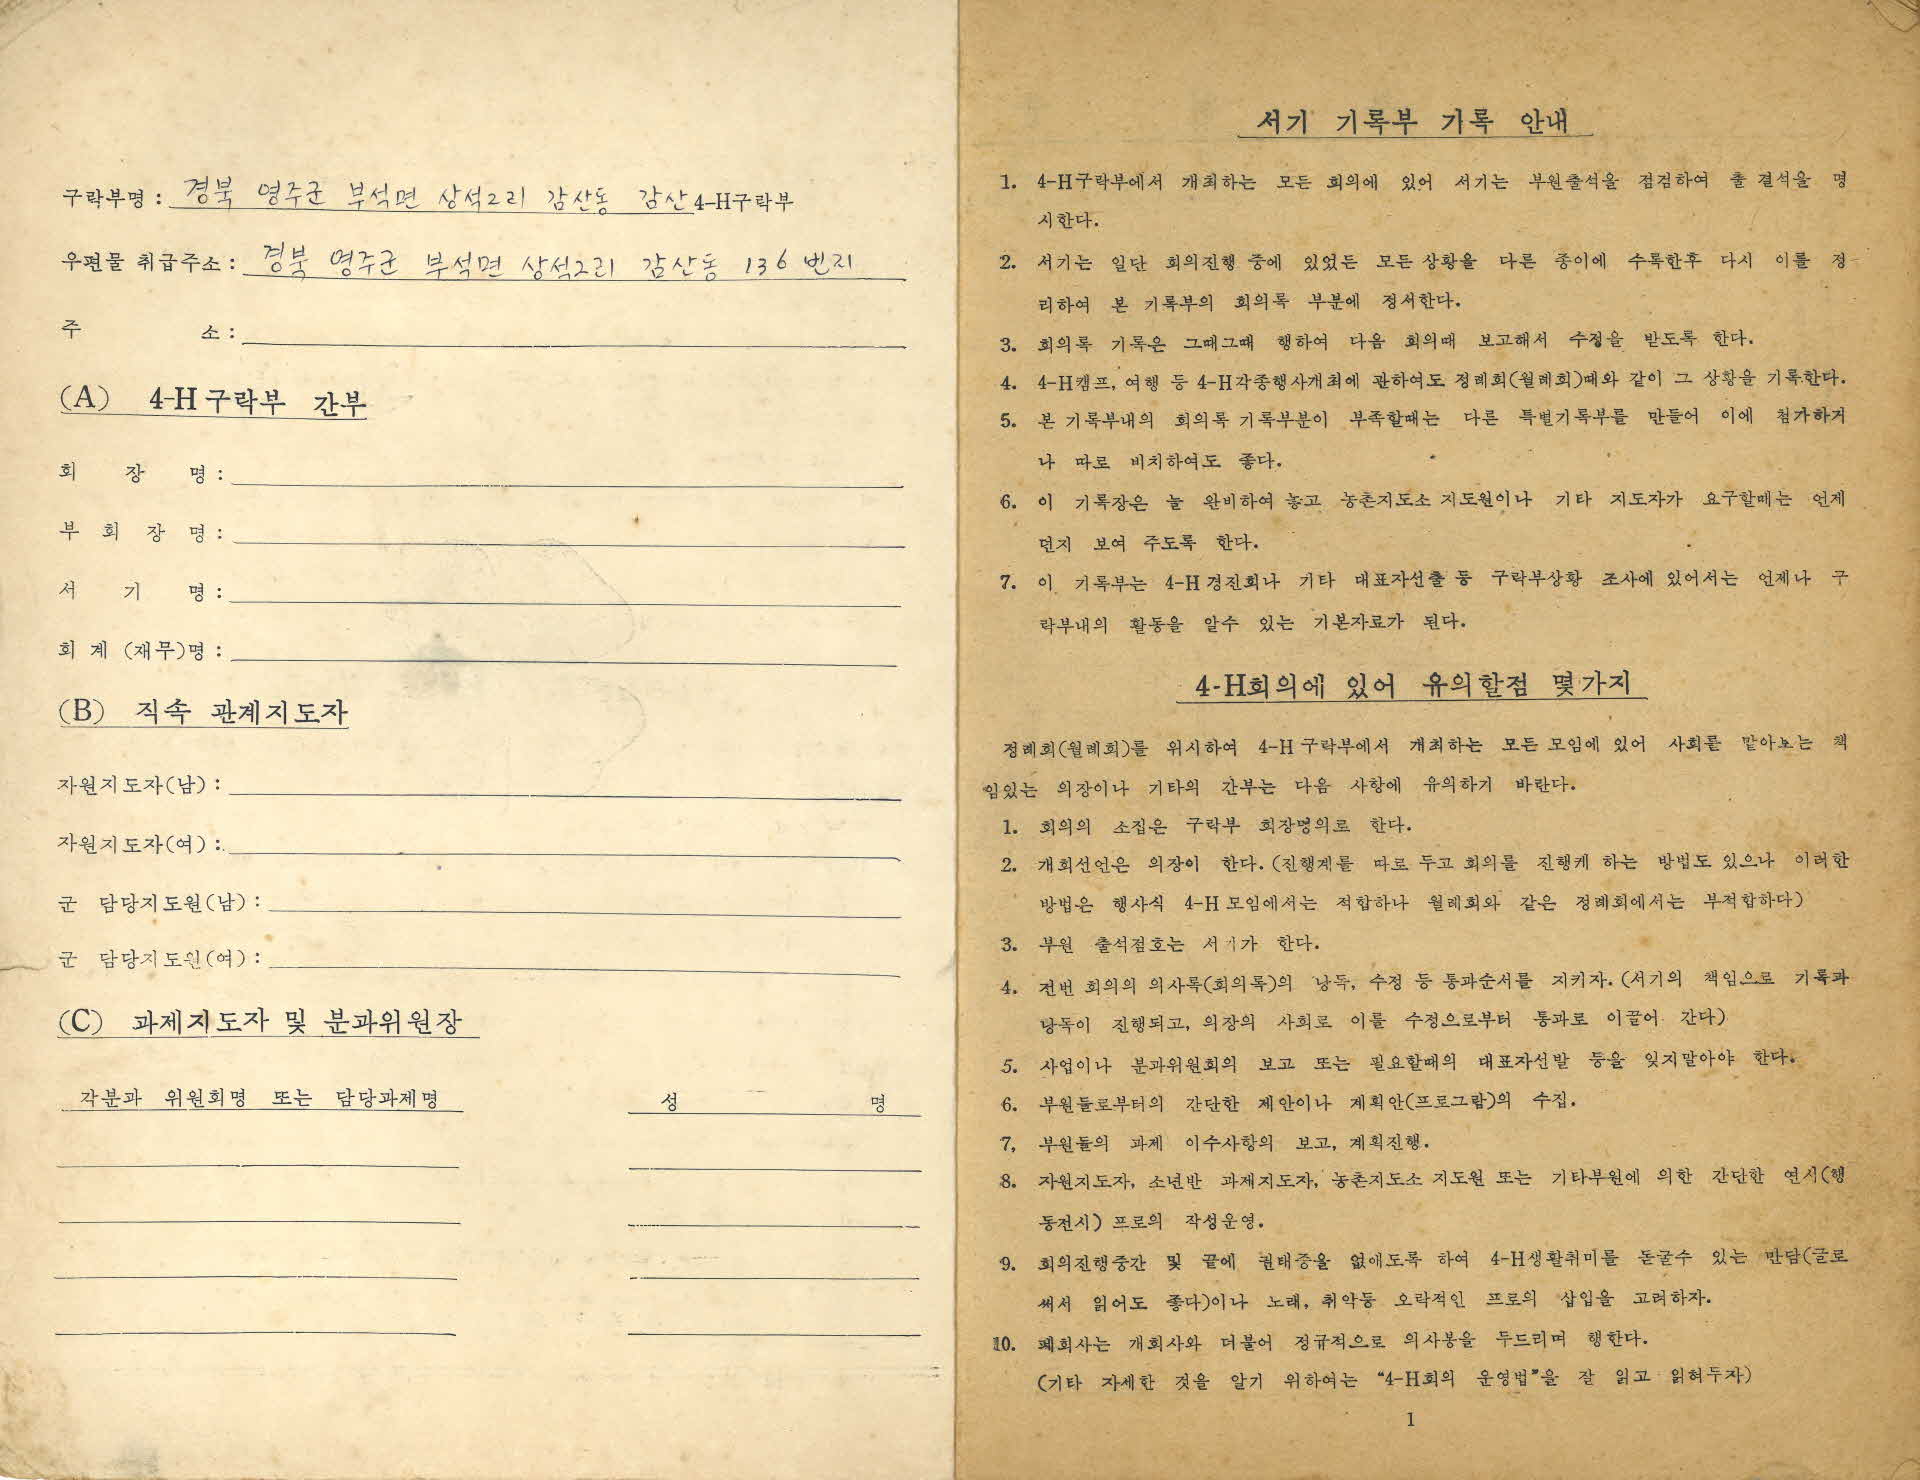 구락부명 : 경북 영주군 부석면 상석2리 감산동 감산 4-H구락부
우편물 취급주소 : 경북 영주군 부석면 상석2리 감산동 136 번지
주 소 :
(A) 4-H 구락부 간부
회 장 명 :
부 회 장 명 :
서 기 명 :
회 계 (재무)명 :
(B) 직속 관계지도자
자원지도자(남) :
자원지도자(여) :
군 담당지도원(남) :
군 담당지도원(여) :
(C) 과제지도자 및 분과위원장
각분과 위원회명 또는 담당과제명 성 명
서기 기록부 기록 안내
1. 4-H구락부에서 개최하는 모든 회의에 있어 서기는 부원출석을 점검하여 출 결석을 명
시한다.
2. 서기는 일단 회의진행 중에 있었든 모든 상황을 다른 종이에 수록한후 다시 이를 정
리하여 본 기록부의 회의록 부분에 정서한다.
3. 회의록 기록은 그때그때 행하여 다음 회의때 보고해서 수정을 받도록 한다.
4. 4-H캠프, 여행 등 4-H각종행사개최에 관하여도 정례회(월례회)때와 같이 그 상황을 기록한다.
5. 본 기록부내의 회의록 기록부분이 부족할때는 다른 특별기록부를 만들어 이에 첨가하거
나 따로 비치하여도 좋다.
6. 이 기록장은 늘 완비하여 놓고 농촌지도소 지도원이나 기타 지도자가 요구할때는 언제
던지 보여 주도록 한다.
7. 이 기록부는 4-H 경진회나 기타 대표자선출 등 구락부상황 조사에 있어서는 언제나 구
락부내의 활동을 알수 있는 기본자료가 된다.
4-H회의에 있어 유의할점 몇가지
정례회(월례회)를 위시하여 4-H 구락부에서 개최하는 모든 모임에 있어 사회를 맡아보는 책
임있는 의장이나 기타의 간부는 다음 사항에 유의하기 바란다.
1. 회의의 소집은 구락부 회장명의로 한다.
2. 개회선언은 의장이 한다. (진행계를 따로 두고 회의를 진행케 하는 방법도 있으나 이러한
방법은 행사식 4-H 모임에서는 적합하나 월례회와 같은 정례회에서는 부적합하다)
3. 부원 출석점호는 서기가 한다.
4. 전번 회의의 의사록(회의록)의 낭독, 수정 등 통과순서를 지키자. (서기의 책임으로 기록과
낭독이 진행되고, 의장의 사회로 이를 수정으로부터 통과로 이끌어 간다)
5. 사업이나 분과위원회의 보고 또는 필요할때의 대표자선발 등을 잊지말아야 한다.
6. 부원들로부터의 간단한 제안이나 계획안(프로그람)의 수집.
7, 부원들의 과제 이수사항의 보고, 계획진행.
8. 자원지도자, 소년반 과제지도자, 농촌지도소 지도원 또는 기타부원에 의한 간단한 연시(행
동전시) 프로의 작성운영.
9. 회의진행중간 및 끝에 권태증을 없애도록 하여 4-H생활취미를 돋굴수 있는 만담(글로
써서 읽어도 좋다)이나 노래, 취악등 오락적인 프로의 삽입을 고려하자.
10. 폐회사는 개회사와 더불어 정규적으로 의사봉을 두드리며 행한다.
(기타 자세한 것을 알기 위하여는 "4-H회의 운영법"을 잘 읽고 읽혀두자)
1